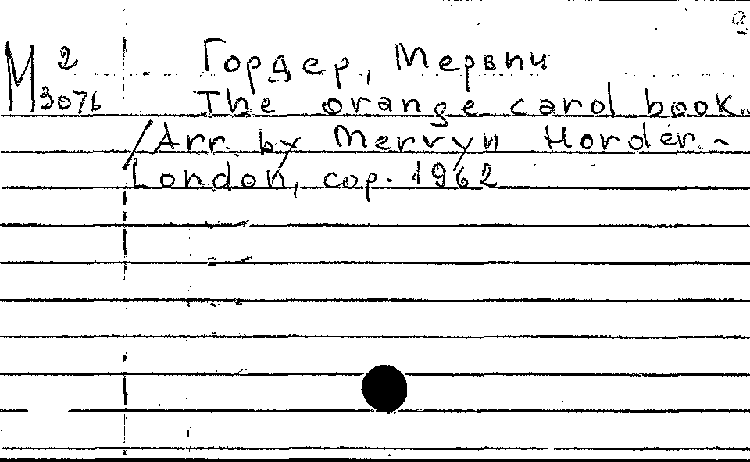 М 2 Гордер, Мервин
3076 The orange carol book.
/Arr. by Mervyn Horder. -
London, cop. 1962